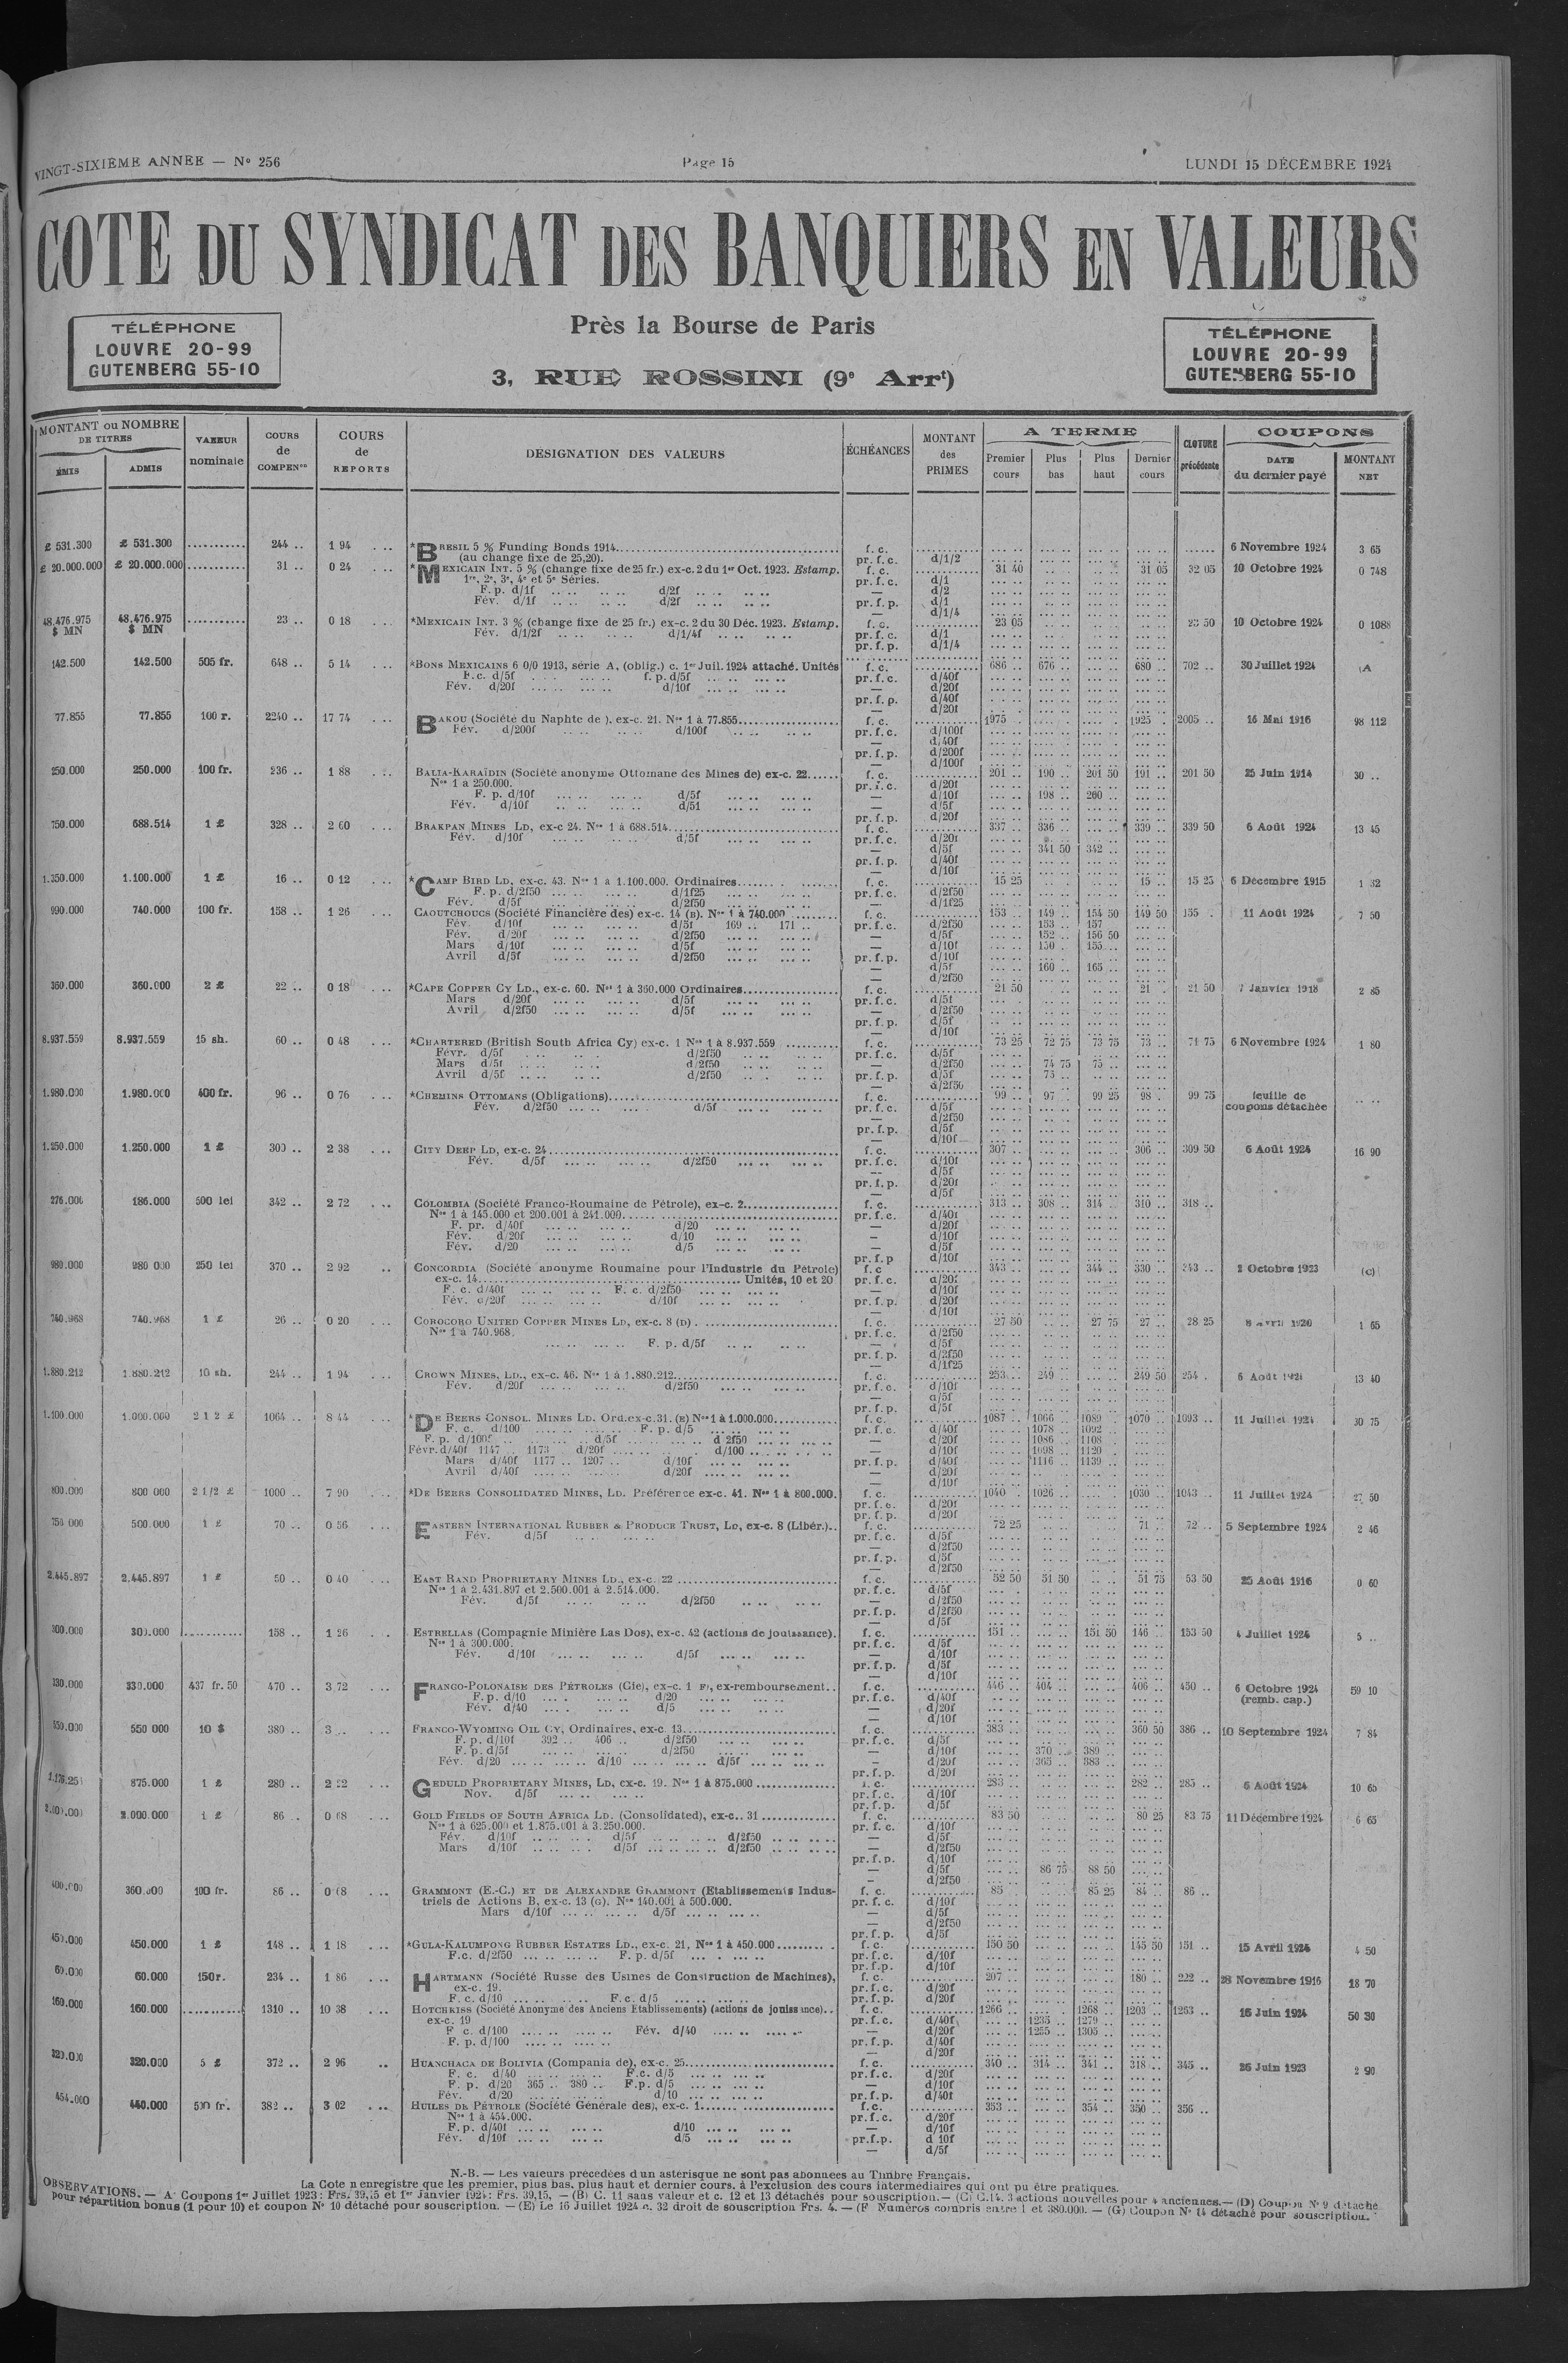 VINGT-SIXIÈME ANNÉE — N° 256 Page 15 LUNDI 15 DÉCEMBRE 1924
COTE DU SYNDICAT DES BANQUIERS EN VALEURS
TÉLÉPHONE
LOUVRE 20-99
GUTENBERG 55-10
Près la Bourse de Paris
3, RUE ROSSINI (9e Arrt)
TÉLÉPHONE
LOUVRE 20-99
GUTENBERG 55-10
MONTANT ou NOMBRE DE TITRES
ÉMIS ADMIS
VALEUR nominale
COURS de COMPENon
COURS de REPORTS
DESIGNATION DES VALEURS
ÉCHÉANCES
MONTANT des PRIMES
A TERME
Premier cours Plus bas Plus haut Dernier cours
CLOTURE précédente
COUPONS
DATE du dernier payé MONTANT NET
£ 531.300 £ 531.300 .......... 244 .. 1 94 *BRESIL 5 % Funding Bonds 1914 f. c. 6 Novembre 1924 3 65
(au change fixe de 25,20). pr. f. c. d/1/2
£ 20.000.000 £ 20.000.000 .......... 31 .. 0 24 *MEXICAIN INT. 5 % (change fixe de 25 fr.) ex-c. 2 du 1er Oct. 1923. Estamp. f. c. 31 40 31 05 32 05 10 Octobre 1924 0 748
1re, 2e, 3e, 4e et 5e Séries. pr. f. c. d/1
F. p. d/1f d/2f — d/2
Fév. d/1f d/2f pr. f. p. d/1
— d/1/4
48.476.975 $ MN 48.476.975 $ MN .......... 23 .. 0 18 *MEXICAIN INT. 3 % (change fixe de 25 fr.) ex-c. 2 du 30 Déc. 1923. Estamp. f. c. 23 05 23 50 10 Octobre 1924 0 1088
Fév. d/1/2f d/1/4f pr. f. c. d/1
pr. f. p. d/1/4
142.500 142.500 505 fr. 648 .. 5 14 *BONS MEXICAINS 6 0/0 1913, série A, (oblig.) c. 1er Juil. 1924 attaché. Unités f. c. 686 .. 676 .. 680 .. 702 .. 30 Juillet 1924 (A
F.c. d/5f f. p. d/5f pr. f. c. d/40f
Fév. d/20f d/10f — d/20f
pr. f. p. d/40f
— d/20f
77.855 77.855 100 r. 2240 .. 17 74 BAKOU (Société du Naphte de ), ex-c. 21. Nos 1 à 77.855 f. c. 1975 1925 2005 .. 14 Mai 1916 98 112
Fév. d/200f d/100f pr. f. c. d/100f
— d/40f
pr. f. p. d/200f
— d/100f
250.000 250.000 100 fr. 236 .. 1 88 BALIA-KARAÏDIN (Société anonyme Ottomane des Mines de) ex-c. 22 f. c. 201 .. 190 .. 201 50 191 .. 201 50 25 Juin 1914 30 ..
Nos 1 à 250.000. pr. f. c. d/20f
F. p. d/10f d/5f — d/10f 198 .. 200 ..
Fév. d/10f d/5f — d/5f
pr. f. p. d/20f
750.000 688.514 1 £ 328 .. 2 60 BRAKPAN MINES LD, ex-c 24. Nos 1 à 688.514 f. c. 337 .. 336 .. 339 .. 339 50 6 Août 1924 13 45
Fév. d/10f d/5f pr. f. c. d/20f
— d/5f 341 50 342 ..
pr. f. p. d/40f
— d/10f
1.350.000 1.100.000 1 £ 16 .. 0 12 *CAMP BIRD LD, ex-c. 43. Nos 1 à 1.100.000. Ordinaires f. c. 15 25 15 .. 15 25 6 Décembre 1915 1 32
F. p. d/2f50 d/1f25 pr. f. c. d/2f50
Fév. d/5f d/2f50 — d/1f25
990.000 740.000 100 fr. 158 .. 1 26 CAOUTCHOUCS (Société Financière des) ex-c. 14 (B). Nos 1 à 740.000 f. c. 153 .. 149 .. 154 50 149 50 155 . 11 Août 1924 7 50
Fév. d/10f d/5f 169 .. 171 .. pr. f. c. d/2f50 153 .. 157
Fév. d/20f d/2f50 — d/5f 152 .. 156 50
Mars d/10f d/5f — d/10f 150 .. 155
Avril d/5f d/2f50 pr. f. p. d/10f
— d/5f 160 .. 165 ..
— d/2f50
360.000 360.000 2 £ 22 .. 0 18 *CAPE COPPER CY LD., ex-c. 60. Nos 1 à 360.000 Ordinaires f. c. 21 50 21 .. 21 50 7 Janvier 1918 2 85
Mars d/20f d/5f pr. f. c. d/5f
Avril d/2f50 d/5f — d/2f50
pr. f. p. d/5f
— d/10f
8.937.559 8.937.559 15 sh. 60 .. 0 48 *CHARTERED (British South Africa Cy) ex-c. 1 Nos 1 à 8.937.559 f. c. 73 25 72 75 73 75 73 .. 74 75 6 Novembre 1924 1 80
Févr. d/5f d/2f50 pr. f. c. d/5f
Mars d/5f d/2f50 — d/2f50 74 75 75 ..
Avril d/5f d/2f50 pr. f. p. d/5f 75 ..
— d/2f50
1.980.000 1.980.000 400 fr. 96 .. 0 76 *CHEMINS OTTOMANS (Obligations) f. c. 99 .. 97 .. 99 25 98 . 99 75 feuille de
Fév. d/2f50 d/5f pr. f. c. d/5f coupons détachée
— d/2f50
pr. f. p. d/5f
— d/10f
1.250.000 1.250.000 1 £ 300 .. 2 38 CITY DEEP LD, ex-c. 24 f. c. 307 306 .. 309 50 6 Août 1924 16 90
Fév. d/5f d/2f50 pr. f. c. d/10f
— d/5f
pr. f. p. d/20f
— d/5f
276.000 186.000 500 lei 342 .. 2 72 COLOMBIA (Société Franco-Roumaine de Pétrole), ex-c. 2 f. c. 313 .. 308 .. 314 .. 310 .. 318 ..
Nos 1 à 145.000 et 200.001 à 241.000 pr. f. c. d/40f
F. pr. d/40f d/20 — d/20f
Fév. d/20f d/10 — d/10f
Fév. d/20 d/5 — d/5f
pr. f. p d/10f
980.000 980 000 250 lei 370 .. 2 92 CONCORDIA (Société anonyme Roumaine pour l'Industrie du Pétrole) f. c 343 344 .. 330 .. 343 .. 2 Octobre 1923 (c)
ex-c. 14 Unités, 10 et 20 pr. f. c. d/20f
F. c. d/40f F. c. d/2f50 — d/10f
Fév. d/20f d/10f pr. f. p. d/20f
— d/10f
740.968 740.968 1 £ 26 .. 0 20 COROCORO UNITED COPPER MINES LD, ex-c. 8 (D) f. c. 27 50 27 75 27 .. 28 25 8 avril 1920 1 65
Nos 1 à 740.968. pr. f. c. d/2f50
F. p. d/5f — d/5f
pr. f. p. d/2f50
— d/1f25
1.880.212 1.880.212 10 sh. 244 .. 1 94 CROWN MINES, LD., ex-c. 46. Nos 1 à 1.880.212 f. c. 253 249 .. 249 50 254 . 6 Août 1924 13 40
Fév. d/20f d/2f50 pr. f. c. d/10f
— d/5f
pr. f. p. d/5f
1.100.000 1.000.000 2 1 2 £ 1064 .. 8 44 *DE BEERS CONSOL. MINES LD. Ord.ex-c.31. (E) Nos 1 à 1.000.000 f. c. 1087 1066 1089 1070 1093 .. 11 Juillet 1924 30 75
F. c. d/100 F. p. d/5 pr. f. c. d/40f 1078 1092
F. p. d/100f d/5f d 2f50 — d/20f 1086 1108
Févr. d/40f 1147 .. 1173 d/20f d/100 — d/10f 1098 1120
Mars d/40f 1177 .. 1207 .. d/10f pr. f. p. d/40f 1116 1139
Avril d/40f d/20f — d/20f
— d/10f
800.000 800 000 2 1/2 £ 1000 .. 7 90 *DE BEERS CONSOLIDATED MINES, LD. Préférence ex-c. 41. Nos 1 à 800.000. f. c. 1040 1026 1030 .. 1043 .. 11 Juillet 1924 27 50
pr. f. c. d/20f
pr. f. p. d/20f
750 000 500.000 1 £ 70 .. 0 56 EASTERN INTERNATIONAL RUBBER & PRODUCE TRUST, LD, ex-c. 8 (Libér.) f. c. 72 25 71 .. 72 .. 5 Septembre 1924 2 46
Fév. d/5f pr. f. c. d/5f
— d/2f50
pr. f. p. d/5f
— d/2f50
2.445.897 2.445.897 1 £ 50 .. 0 40 EAST RAND PROPRIETARY MINES LD., ex-c. 22 f. c. 52 50 51 50 51 75 53 50 25 Août 1916 0 60
Nos 1 à 2.431.897 et 2.500.001 à 2.514.000. pr. f. c. d/5f
Fév. d/5f d/2f50 — d/2f50
pr. f. p. d/2f50
— d/5f
300.000 300.000 .......... 158 .. 1 26 ESTRELLAS (Compagnie Minière Las Dos), ex-c. 42 (actions de jouissance). f. c. 151 151 50 146 .. 153 50 4 Juillet 1924 5 ..
Nos 1 à 300.000. pr. f. c. d/5f
Fév. d/10f d/5f — d/10f
pr. f. p. d/5f
— d/10f
330.000 330.000 437 fr. 50 470 .. 3 72 FRANCO-POLONAISE DES PÉTROLES (Cie), ex-c. 1 F), ex-remboursement f. c. 446 .. 404 .. 406 .. 450 .. 6 Octobre 1924 59 10
F. p. d/10 d/20 pr. f. c. d/40f (remb. cap.)
Fév. d/40 d/5 — d/20f
— d/10f
550.000 550 000 10 $ 380 .. 3 .. FRANCO-WYOMING OIL CY, Ordinaires, ex-c. 13 f. c. 383 360 50 386 .. 10 Septembre 1924 7 84
F. p. d/10f 392 .. 406 .. d/2f50 pr. f. c. d/5f
F. p. d/5f d/2f50 — d/10f 370 .. 389 ..
Fév. d/20 d/10 d/5f — d/20f 365 .. 383 ..
pr. f. p. d/20f
875.000 1 £ 280 .. 2 22 GEDULD PROPRIETARY MINES, LD, ex-c. 19. Nos 1 à 875.000 f. c. 283 282 .. 285 .. 6 Août 1924 10 65
Nov. d/5f pr. f. c. d/10f
pr. f. p. d/5f
2.000.000 1 £ 86 .. 0 68 GOLD FIELDS OF SOUTH AFRICA LD. (Consolidated), ex-c.. 31 f. c. 83 50 80 25 83 75 11 Décembre 1924 6 65
Nos 1 à 625.000 et 1.875.001 à 3.250.000. pr. f. c. d/10f
Fév. d/10f d/5f d/2f50 — d/5f
Mars d/10f d/5f d/2f50 — d/2f50
pr. f. p. d/10f
— d/5f 86 75 88 50
— d/2f50
400.000 360.000 100 fr. 86 .. 0 68 GRAMMONT (E.-C.) ET DE ALEXANDRE GRAMMONT (Etablissements Indus- f. c. 85 85 25 84 .. 86 ..
triels de Actions B, ex-c. 13 (G). Nos 140.001 à 500.000. pr. f. c. d/10f
Mars d/10f d/5f — d/5f
— d/2f50
pr. f. p. d/5f
450.000 450.000 1 £ 148 .. 1 18 *GULA-KALUMPONG RUBBER ESTATES LD., ex-c. 21, Nos 1 à 450.000 f. c. 150 50 145 50 151 .. 15 Avril 1924 4 50
F.c. d/2f50 F. p. d/5f pr. f. c. d/10f
pr. f. p. d/10f
60.000 60.000 150 r. 234 .. 1 86 HARTMANN (Société Russe des Usines de Construction de Machines), f. c. 207 180 .. 222 .. 28 Novembre 1916 18 70
ex-c. 19. pr. f. c. d/20f
F. c. d/10 F. c. d/5 pr. f. p. d/20f
160.000 160.000 .......... 1310 .. 10 38 HOTCHKISS (Société Anonyme des Anciens Etablissements) (actions de jouissance) f. c. 1266 1268 1203 1263 .. 16 Juin 1924 50 30
ex-c. 19 pr. f. c. d/40f 1235 1279
F c. d/100 Fév. d/40 — d/20f 1255 1305
F. p. d/100 pr. f. p. d/40f
— d/20f
320.000 320.000 5 £ 372 .. 2 96 HUANCHACA DE BOLIVIA (Compania de), ex-c. 25 f. c. 340 .. 314 .. 341 .. 318 .. 345 .. 26 Juin 1923 2 90
F. c. d/40 F.c. d/5 pr. f. c. d/20f
F. p. d/20 365 .. 380 .. F.p. d/5 — d/10f
Fév. d/20 d/10 pr. f. p. d/40f
454.000 440.000 500 fr. 382 .. 3 02 HUILES DE PÉTROLE (Société Générale des), ex-c. 1 f. c. 353 354 .. 350 .. 356 ..
Nos 1 à 454.000. pr. f. c. d/20f
F. p. d/40f d/10 — d/10f
Fév. d/10f d/5 pr. f. p. d 10f
— d/5f
N.-B. — Les valeurs précédées d'un astérisque ne sont pas abonnées au Timbre Français.
La Cote n'enregistre que les premier, plus bas, plus haut et dernier cours, à l'exclusion des cours intermédiaires qui ont pu être pratiqués.
OBSERVATIONS. — A) Coupons 1er Juillet 1923 : Frs. 39,15 et 1er Janvier 1924 : Frs. 39,15. — (B) C. 11 sans valeur et c. 12 et 13 détachés pour souscription. — (C) C.14. 3 actions nouvelles pour 4 anciennes. — (D) Coupon N° 9 détaché
pour répartition bonus (1 pour 10) et coupon N° 10 détaché pour souscription. — (E) Le 16 Juillet 1924 c. 32 droit de souscription Frs. 4. — (F Numéros compris entre 1 et 380.000. — (G) Coupon N° 14 détaché pour souscription.